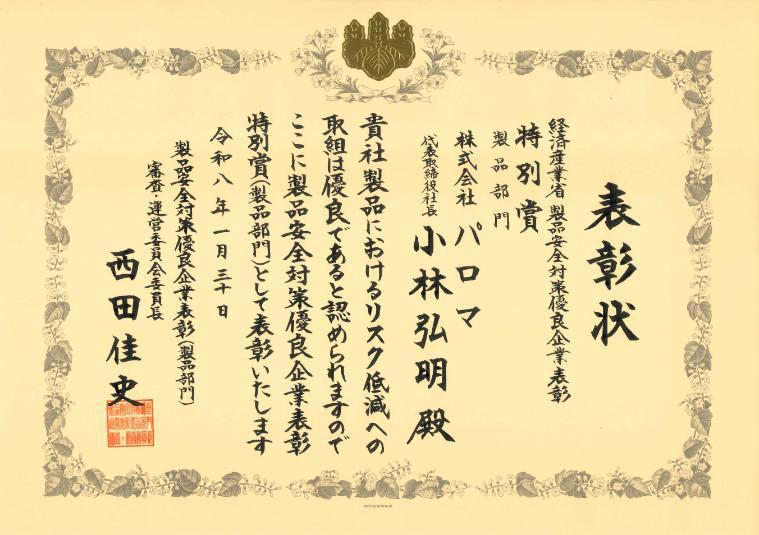 表彰状
経済産業省 製品安全対策優良企業表彰
特別賞
製品部門
株式会社 パロマ
代表取締役社長 小林弘明 殿
貴社製品におけるリスク低減への
取組は優良であると認められますので
ここに製品安全対策優良企業表彰
特別賞(製品部門)として表彰いたします
令和八年一月三十日
製品安全対策優良企業表彰(製品部門)
審査・運営委員会委員長
西田佳史